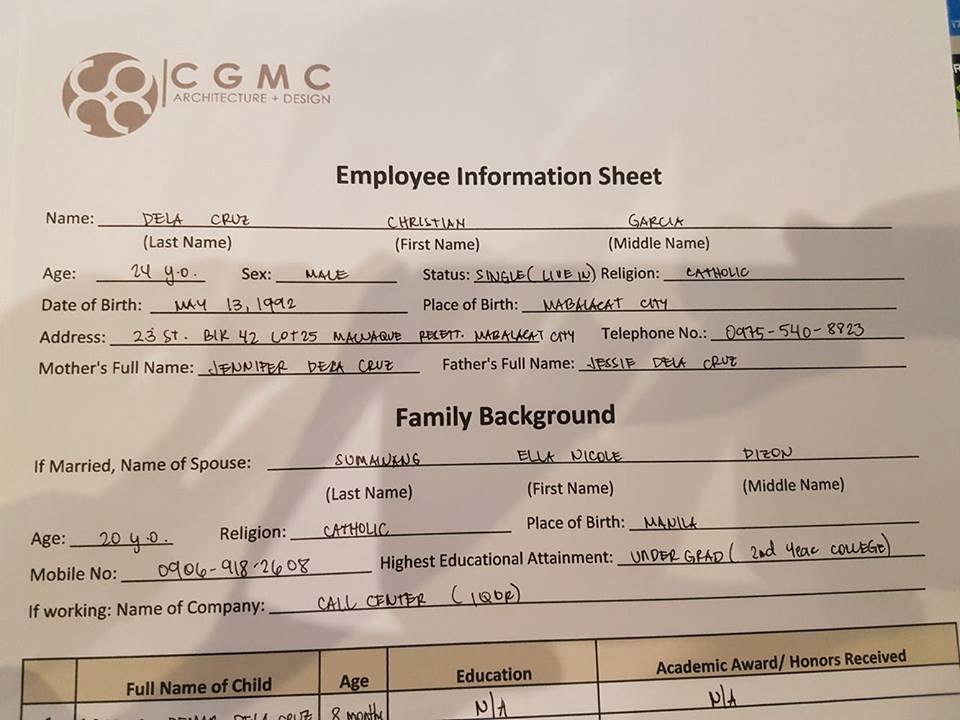 CGMC
ARCHITECTURE + DESIGN
Employee Information Sheet
Name: DELA CRUZ CHRISTIAN GARCIA
(Last Name) (First Name) (Middle Name)
Age: 24 y.o. Sex: MALE Status: SINGLE (LIVE IN) Religion: CATHOLIC
Date of Birth: MAY 13, 1992 Place of Birth: MABALACAT CITY
Address: 23 ST. BLK 42 LOT 25 MABALACAT CITY Telephone No.: 0975-540-8923
Mother's Full Name: JENNIFER DELA CRUZ Father's Full Name: JESSIE DELA CRUZ
Family Background
If Married, Name of Spouse: SUMAWANG ELLA NICOLE DIZON
(Last Name) (First Name) (Middle Name)
Age: 20 y.o. Religion: CATHOLIC Place of Birth: MANILA
Mobile No: 0906-918-2608 Highest Educational Attainment: UNDER GRAD (2nd year COLLEGE)
If working: Name of Company: CALL CENTER (IQOR)
Full Name of Child Age Education Academic Award/ Honors Received
DELA CRUZ 8 months N/A N/A